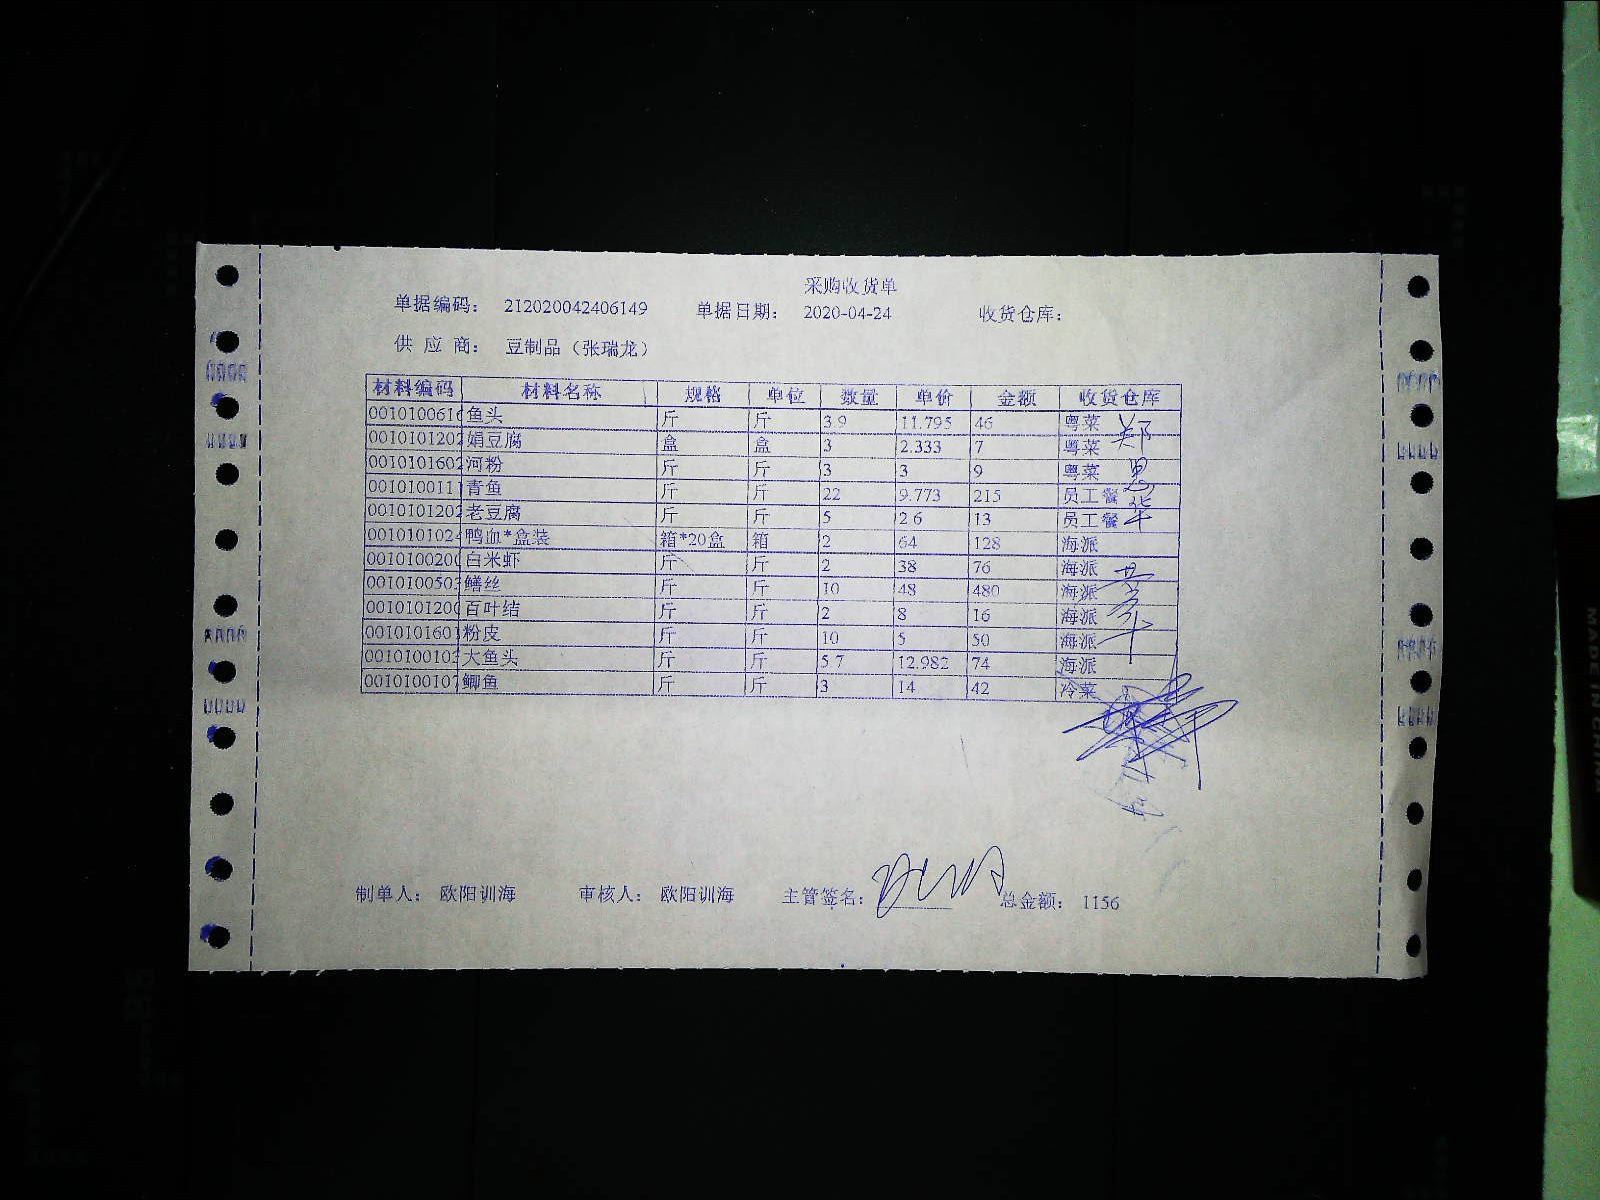 采购收货单
单据编码： 212020042406149 单据日期： 2020-04-24 收货仓库：
供 应 商： 豆制品（张瑞龙）
材料编码 材料名称 规格 单位 数量 单价 金额 收货仓库
001010061 鱼头 斤 斤 3.9 11.795 46 粤菜
0010101202 娟豆腐 盒 盒 3 2.333 7 粤菜
0010101602 河粉 斤 斤 3 3 9 粤菜
001010011 青鱼 斤 斤 22 9.773 215 员工餐
0010101202 老豆腐 斤 斤 5 2.6 13 员工餐
001010102 鸭血*盒装 箱*20盒 箱 2 64 128 海派
001010020 白米虾 斤 斤 2 38 76 海派
001010050 鳝丝 斤 斤 10 48 480 海派
001010120 百叶结 斤 斤 2 8 16 海派
001010160 粉皮 斤 斤 10 5 50 海派
001010010 大鱼头 斤 斤 5.7 12.982 74 海派
001010010 鲫鱼 斤 斤 3 14 42 冷菜
制单人： 欧阳训海 审核人： 欧阳训海 主管签名： 总金额： 1156
MADE IN CHINA